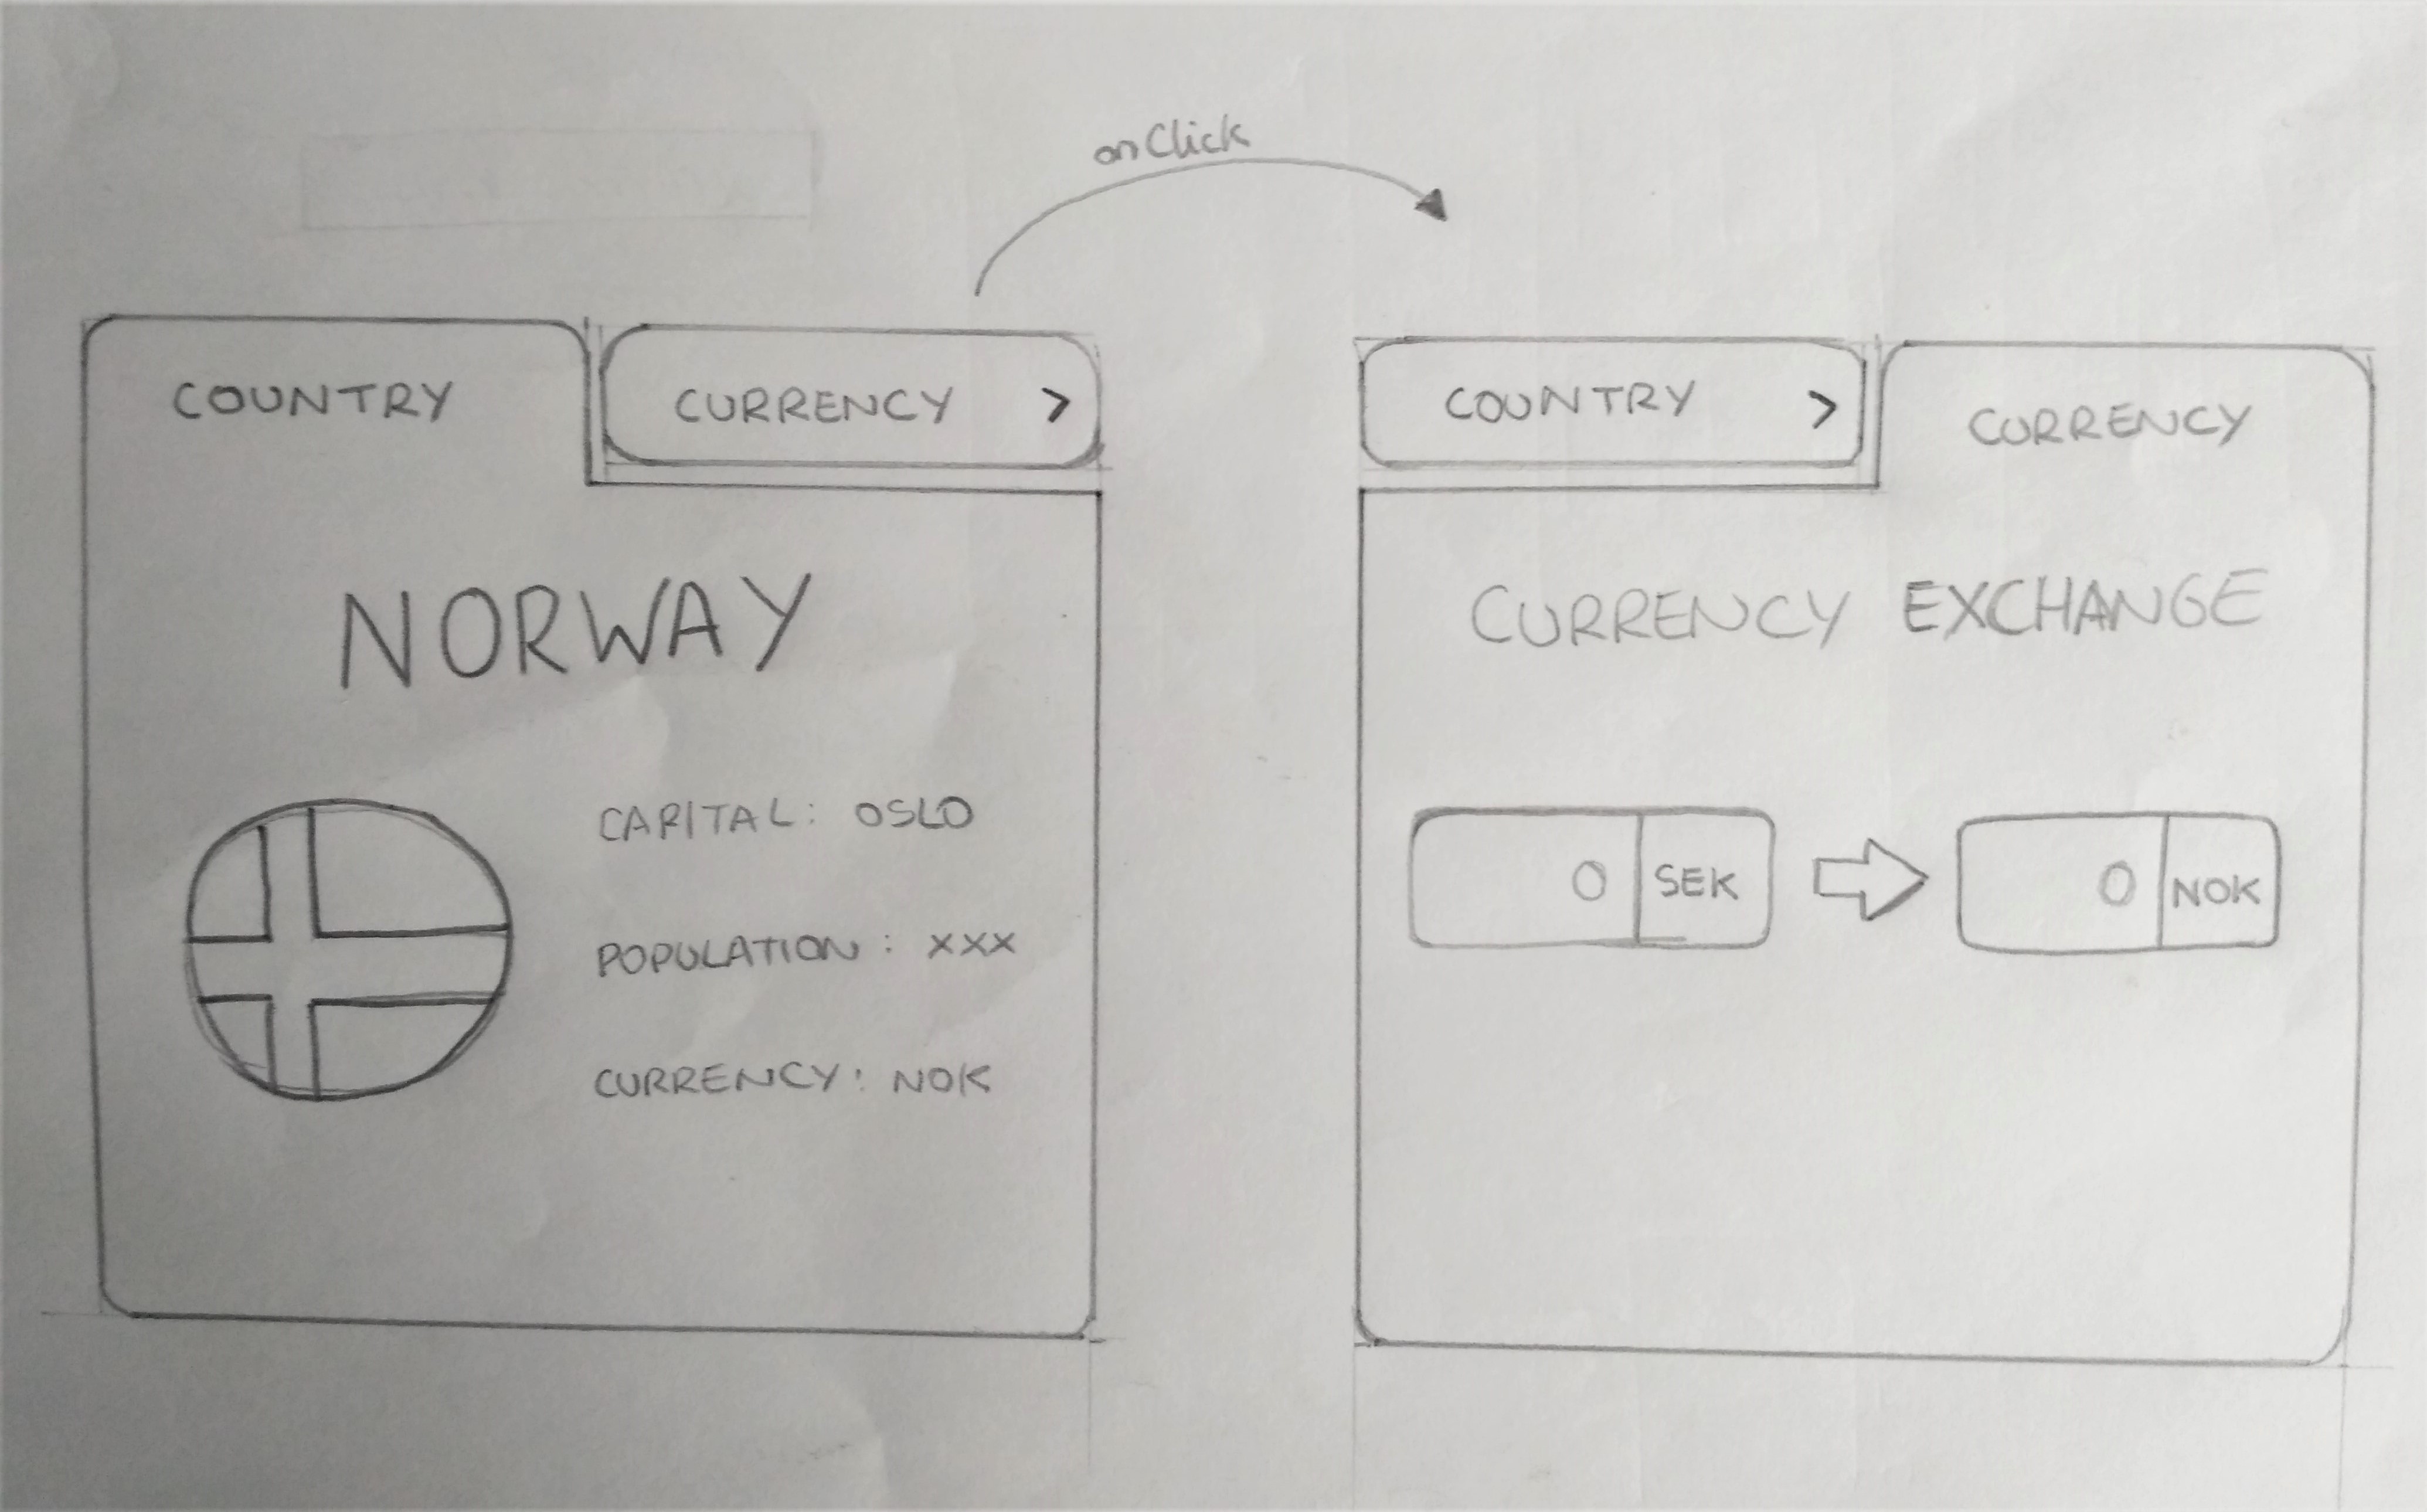 onClick
COUNTRY
CURRENCY >
NORWAY
CAPITAL: OSLO
POPULATION: XXX
CURRENCY: NOK
COUNTRY >
CURRENCY
CURRENCY EXCHANGE
0 SEK
0 NOK